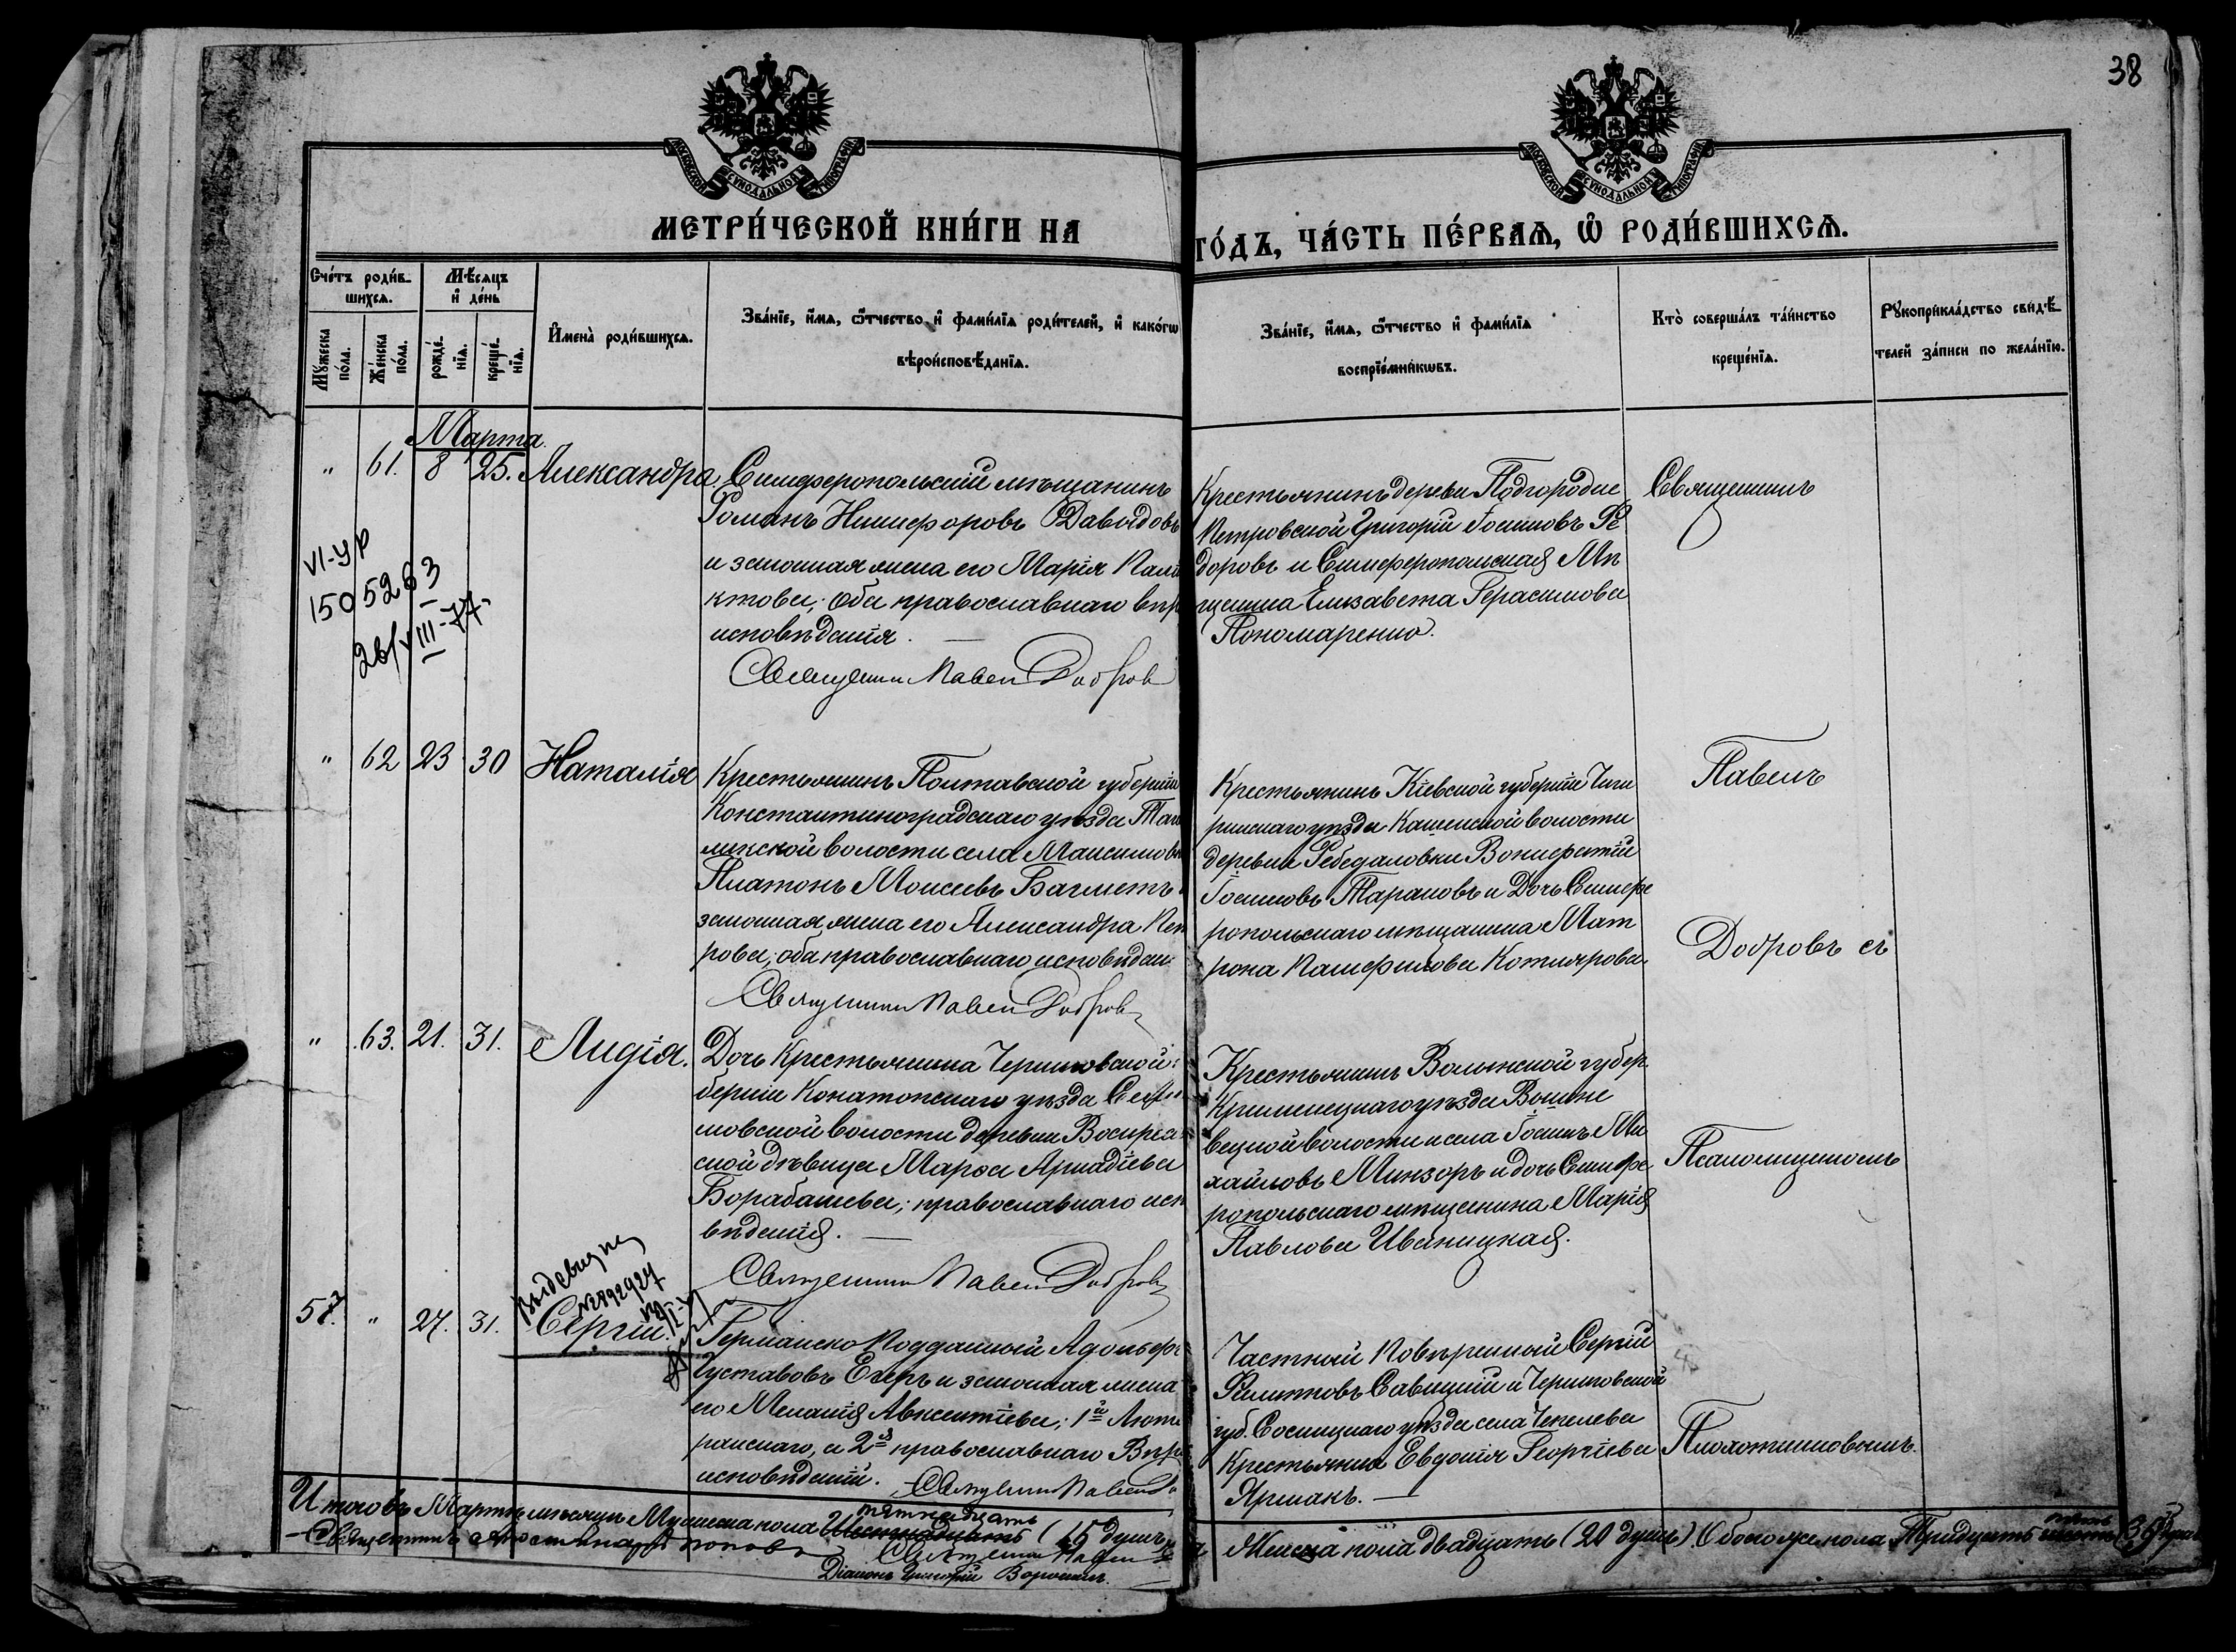 38
МОСКОВСКОЙ СѴНОДАЛЬНОЙ ТИПОГРАФІИ
МОСКОВСКОЙ СѴНОДАЛЬНОЙ ТИПОГРАФІИ
МЕТРИ́ЧЕСКОЙ КНИ́ГИ НА
ГО́ДЪ, ЧА́СТЬ ПЕ́РВАѦ, Ѽ РОДИ́ВШИХСѦ.
Сче́тъ роди́в-
шихсѧ.
Мѣ́сѧцъ
и҆ де́нь
Мꙋ́жеска
по́ла.
Же́нска
по́ла.
рожде́-
нїѧ.
креще́-
нїѧ.
И҆мена̀ роди́вшихсѧ.
Зва́нїе, и҆́мѧ, ѻ҆́тчество и҆ фами́лїѧ роди́телей, и҆ како́гѡ
вѣроисповѣ́данїѧ.
Зва́нїе, и҆́мѧ, ѻ҆́тчество и҆ фами́лїѧ
воспрїе́мникѡвъ.
Кто̀ соверша́лъ та́инство
креще́нїѧ.
Рꙋкоприкла́дство свидѣ́-
телей за́писи по жела́нїю.
Марта
" 61. 8 25. Александра.
Симферопольскій мѣщанинъ
Романъ Никифоровъ Давыдовъ
и законная жена его Марія
ктова; оба православнаго вѣр
исповѣданія.
Священникъ Павелъ Добров
Крестьянинъ деревни Подгородне
Петровской Григорій Іосифовъ Ѳе
доровъ и Симферопольская Мѣ
щанка Елизавета Герасимова
Пономаренко.
Священникъ
VI-УР
1505263
26/VIII-77
" 62 23 30 Наталія
Крестьянинъ Полтавской губерніи
Константиноградскаго уѣзда
волости села
Платонъ Моисеевъ Багметъ и
законная жена его Александра Пет
рова; оба православнаго исповѣдан.
Священникъ Павелъ Добров
Крестьянинъ Кіевской губерніи Чиги
ринскаго уѣзда Каменской волости
деревни Вонифатій
Іосифовъ Тарановъ и Дочь Симфе
ропольскаго мѣщанина Мат
рона Памфилова Котлярова.
Павелъ
Добровъ съ
" 63. 21. 31. Лидія.
Дочь Крестьянина Черниговской
берніи Конотопскаго уѣзда
новской волости деревни Воскрес
ской дѣвица Марѳа Аркадіева
Борабашева; православнаго исп
вѣданія.
Священникъ Павелъ Добров
Крестьянинъ Волынской губер.
Кременецкаго уѣзда
вецкой волости и села Іосифъ Ми
хайловъ Минзоръ и дочь Симфе
ропольскаго мѣщанина Марія
Павлова Иваницкая.
Псаломщикомъ
57. " 27. 31. Сергій.
№ 892927
Германско Подданный Адольфъ
Густавовъ Егеръ и законная жена
его Меланія Авксентіева; 1й Люте
ранскаго, а 2я православнаго Вѣро
исповѣданій. Священникъ Павелъ До
Частный Повѣренный Сергій
Филипповъ Савицкій и Черниговской
губ. Сосницкаго уѣзда села
Крестьянка Евдокія Георгіева
Ярмакъ.
Плохотниковымъ.
Итого въ Мартѣ мѣсяцѣ Мужеска пола пятнадцать (15 душъ)
Женска пола двадцать (20 душъ). Обоего же пола Тридцать пять (35 душъ)
Священникъ
Священникъ Павелъ
Діаконъ Григорій